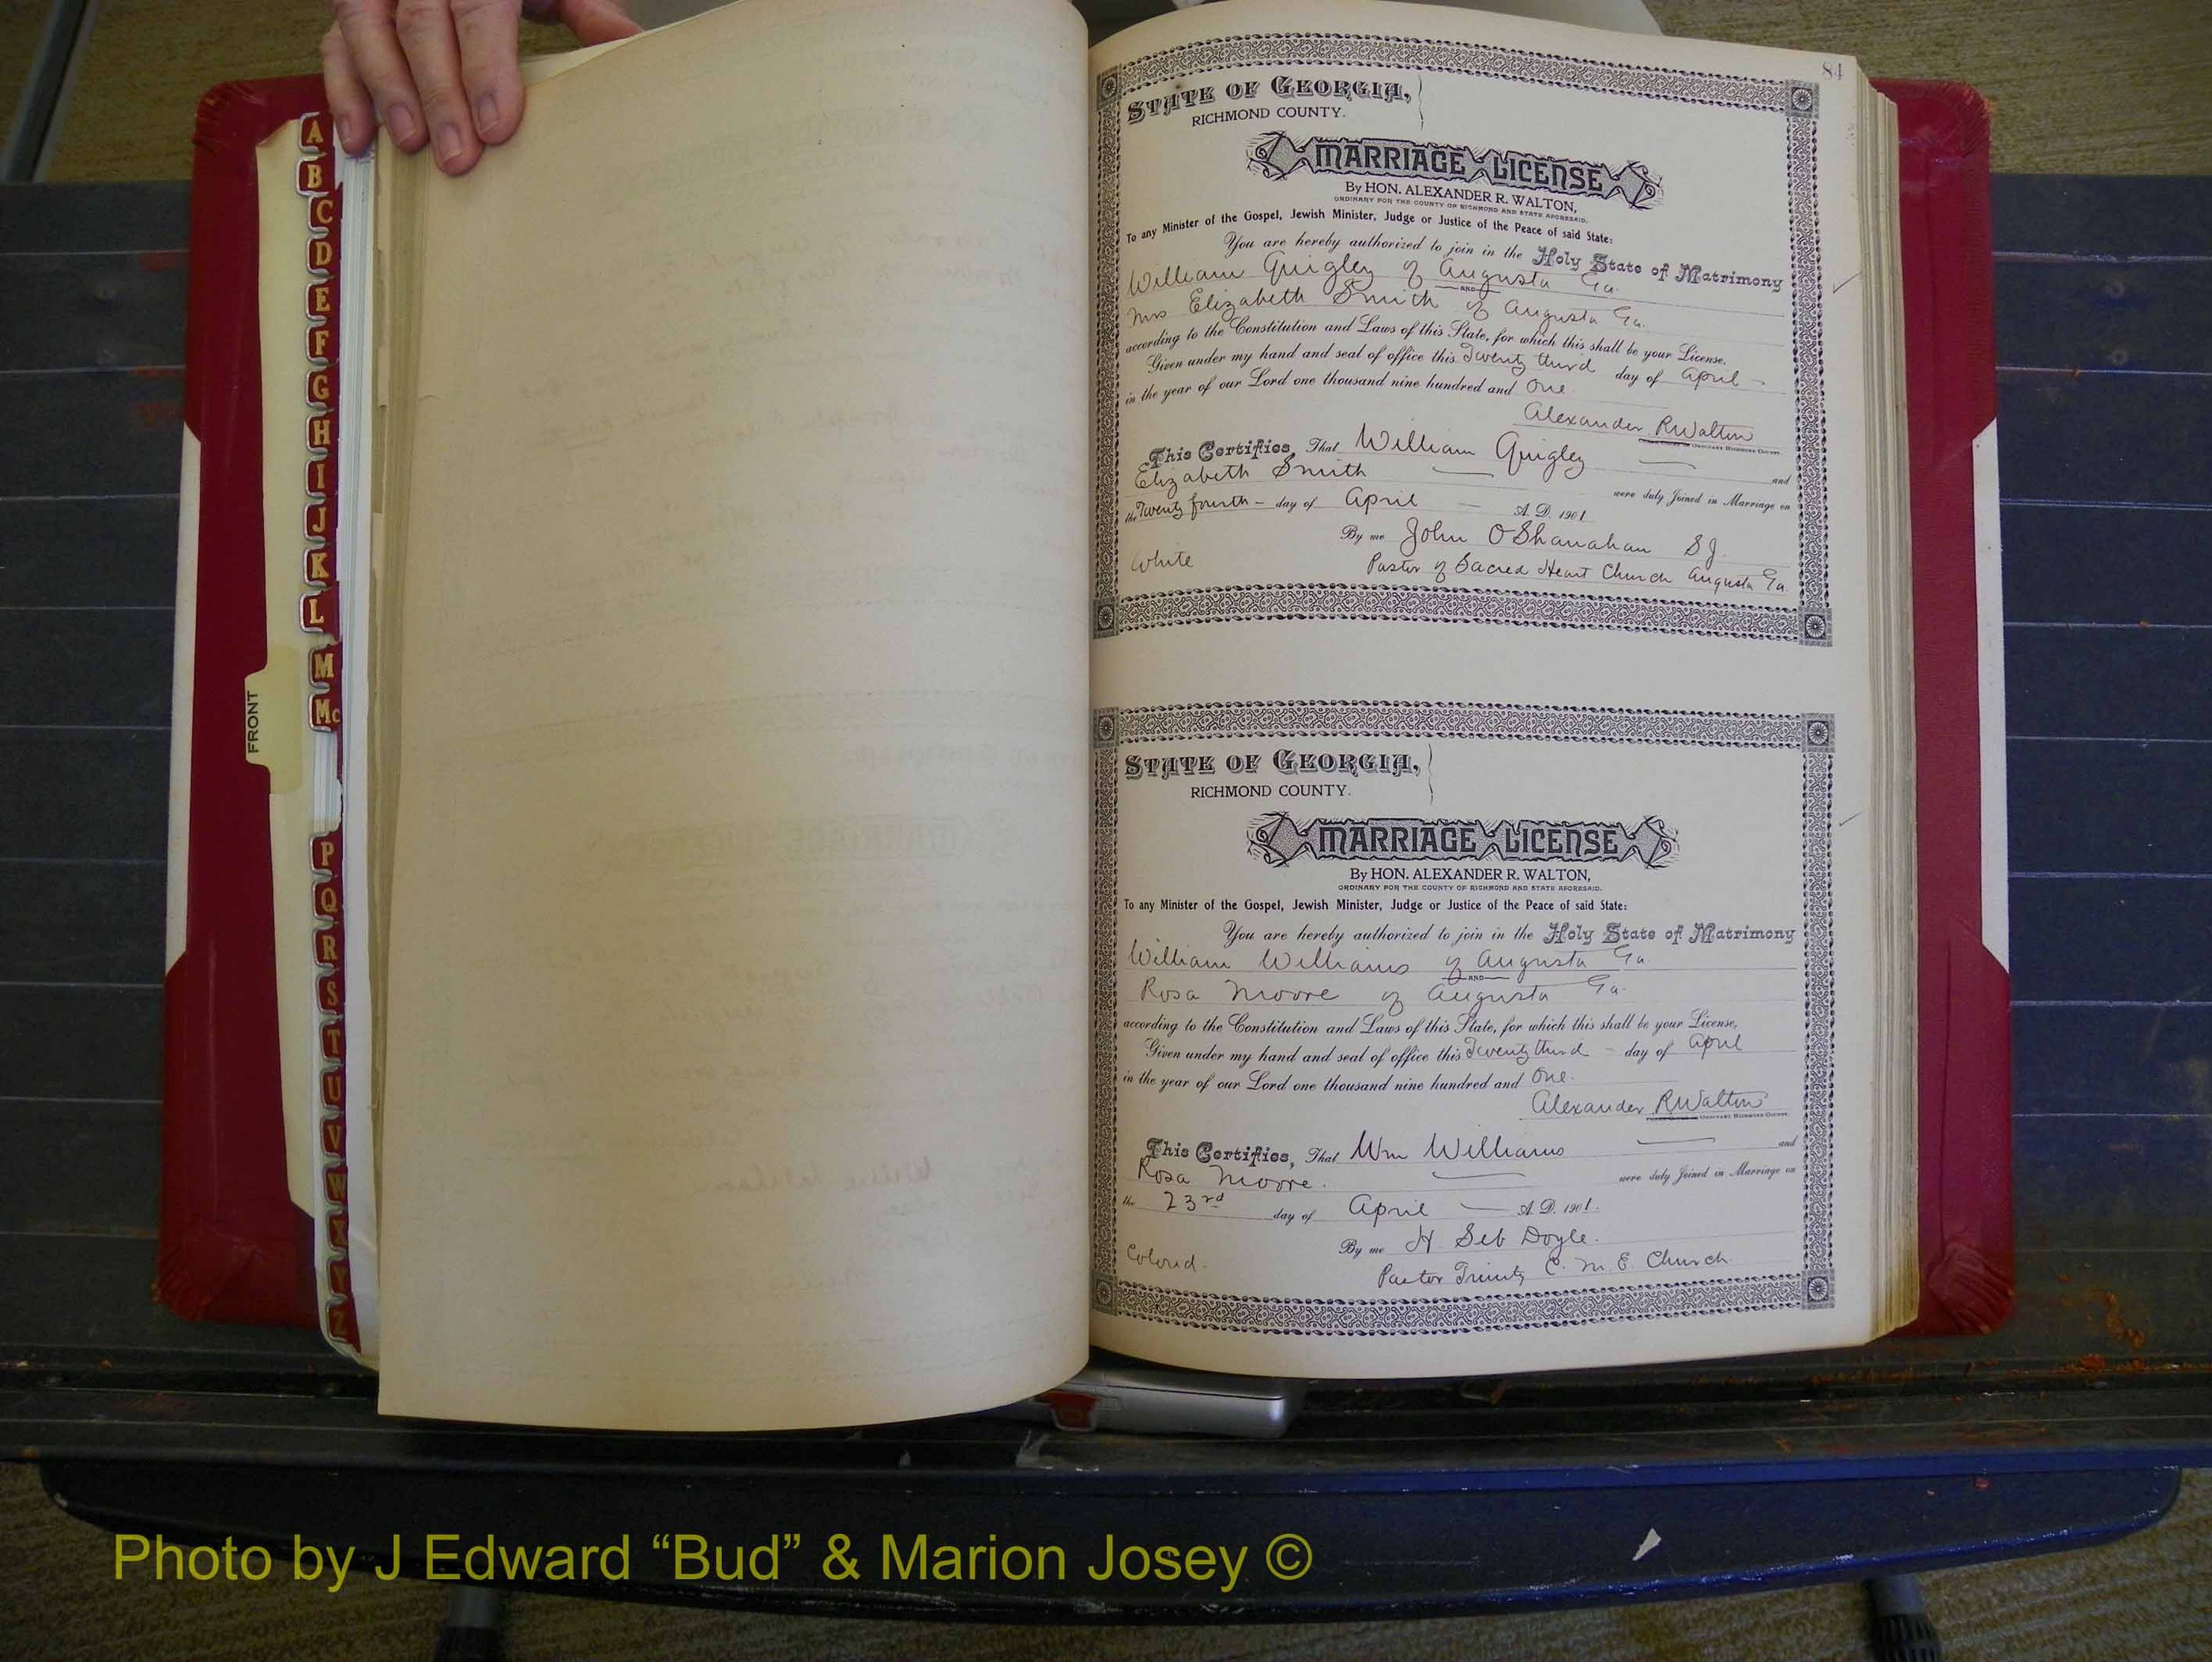 A
B
C
D
E
F
G
H
I
J
K
L
M
Mc
P
Q
R
S
T
U
V
W
X
Y
Z
FRONT
84
STATE OF GEORGIA,
RICHMOND COUNTY.
MARRIAGE LICENSE
By HON. ALEXANDER R. WALTON,
ORDINARY FOR THE COUNTY OF RICHMOND AND STATE AFORESAID.
To any Minister of the Gospel, Jewish Minister, Judge or Justice of the Peace of said State:
You are hereby authorized to join in the Holy State of Matrimony
William Quigley of Augusta Ga.
AND
Mrs Elizabeth Smith of Augusta Ga.
according to the Constitution and Laws of this State, for which this shall be your License.
Given under my hand and seal of office this Twenty third day of April
in the year of our Lord one thousand nine hundred and One
Alexander R Walton
ORDINARY RICHMOND COUNTY.
This Certifies, That William Quigley and
Elizabeth Smith were duly Joined in Marriage on
the Twenty fourth day of April A. D. 1901
By me John OShanahan SJ.
White Pastor of Sacred Heart Church Augusta Ga.
STATE OF GEORGIA,
RICHMOND COUNTY.
MARRIAGE LICENSE
By HON. ALEXANDER R. WALTON,
ORDINARY FOR THE COUNTY OF RICHMOND AND STATE AFORESAID.
To any Minister of the Gospel, Jewish Minister, Judge or Justice of the Peace of said State:
You are hereby authorized to join in the Holy State of Matrimony
William Williams of Augusta Ga
AND
Rosa Moore of Augusta Ga.
according to the Constitution and Laws of this State, for which this shall be your License,
Given under my hand and seal of office this Twenty third - day of April
in the year of our Lord one thousand nine hundred and One.
Alexander R Walton
ORDINARY RICHMOND COUNTY.
This Certifies, That Wm Williams and
Rosa Moore. were duly Joined in Marriage on
the 23rd day of April A. D. 1901.
By me H Seb Doyle.
Colored- Pastor Trinity C. M. E. Church
Photo by J Edward “Bud” & Marion Josey ©